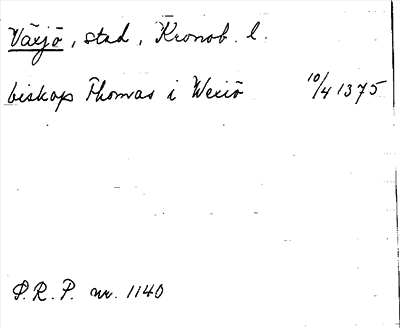 Växjö, stad, Kronob. l.
biskop Thomas i Wexiö 10/4 1375
P.R.P. nr. 1140